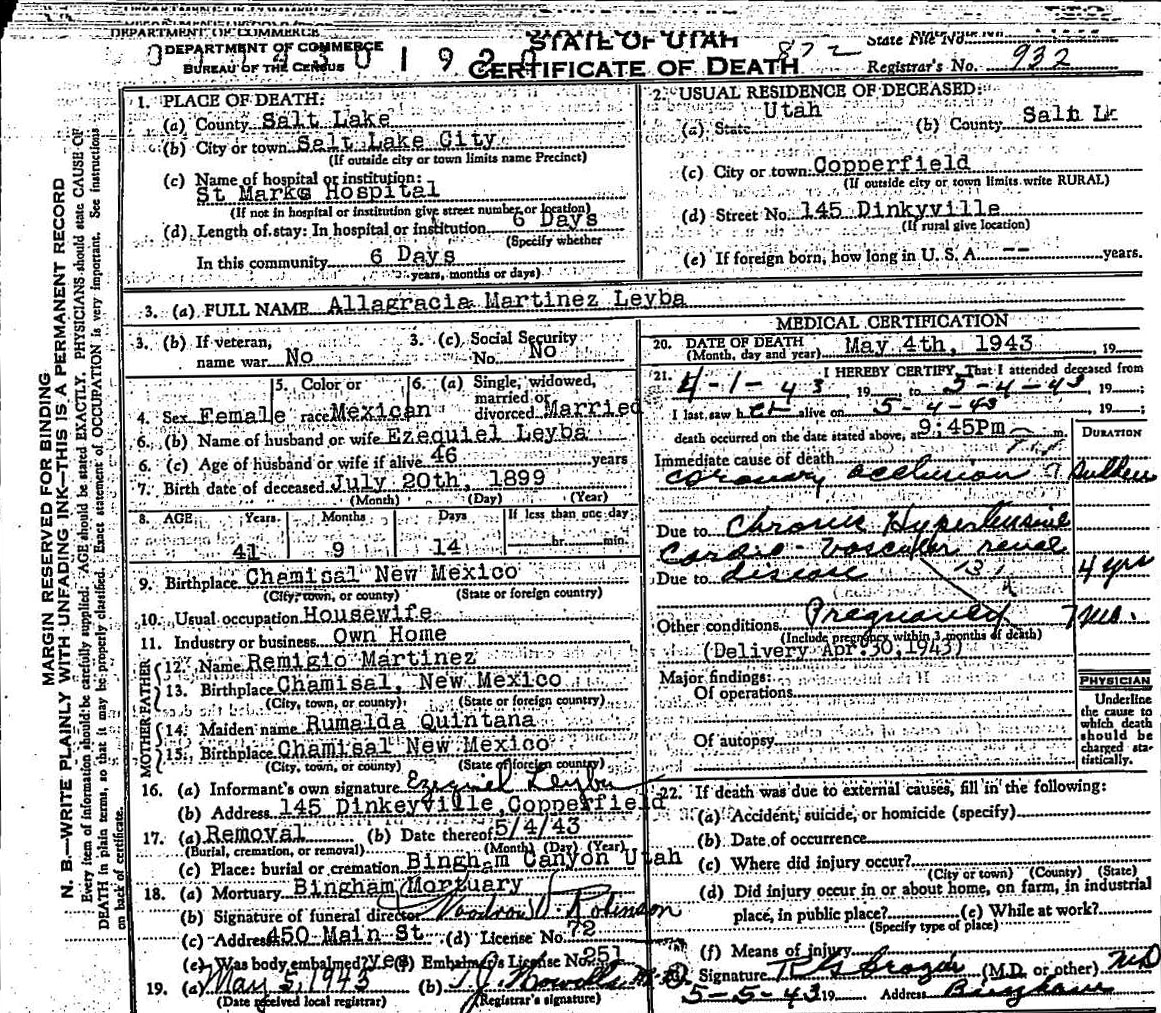 DEPARTMENT OF COMMERCE
DEPARTMENT OF COMMERCE
BUREAU OF THE CENSUS
STATE OF UTAH
CERTIFICATE OF DEATH
872
State File No.
Registrar's No. 932
MARGIN RESERVED FOR BINDING
N. B.—WRITE PLAINLY WITH UNFADING INK—THIS IS A PERMANENT RECORD
Every item of information should be carefully supplied. AGE should be stated EXACTLY. PHYSICIANS should state CAUSE OF
DEATH in plain terms, so that it may be properly classified. Exact statement of OCCUPATION is very important. See instructions
on back of certificate.
1. PLACE OF DEATH:
(a) County Salt Lake
(b) City or town Salt Lake City
(If outside city or town limits name Precinct)
(c) Name of hospital or institution:
St Marks Hospital
(If not in hospital or institution give street number or location)
(d) Length of stay: In hospital or institution 6 Days
(Specify whether
In this community 6 Days
years, months or days)
2. USUAL RESIDENCE OF DECEASED:
(a) State Utah (b) County Salt Lk
(c) City or town Copperfield
(If outside city or town limits write RURAL)
(d) Street No. 145 Dinkyville
(If rural give location)
(e) If foreign born, how long in U. S. A. -- years.
3. (a) FULL NAME Allagracia Martinez Leyba
3. (b) If veteran, name war No
3. (c) Social Security No. No
4. Sex Female
5. Color or race Mexican
6. (a) Single, widowed, married or divorced Married
6. (b) Name of husband or wife Ezequiel Leyba
6. (c) Age of husband or wife if alive 46 years
7. Birth date of deceased July 20th, 1899
(Month) (Day) (Year)
8. AGE Years Months Days If less than one day
41 9 14 hr. min.
9. Birthplace Chamisal New Mexico
(City, town, or county) (State or foreign country)
10. Usual occupation Housewife
11. Industry or business Own Home
FATHER
12. Name Remigio Martinez
13. Birthplace Chamisal, New Mexico
(City, town, or county) (State or foreign country)
MOTHER
14. Maiden name Rumalda Quintana
15. Birthplace Chamisal New Mexico
(City, town, or county) (State of foreign country)
16. (a) Informant's own signature Ezequiel Leyba
(b) Address 145 Dinkeyville, Copperfield
17. (a) Removal (b) Date thereof 5/4/43
(Burial, cremation, or removal) (Month) (Day) (Year)
(c) Place: burial or cremation Bingham Canyon Utah
18. (a) Mortuary Bingham Mortuary
(b) Signature of funeral director Woodrow D Robinson
(c) Address 450 Main St (d) License No. 72
(e) Was body embalmed? Yes (f) Embalmer's License No. 251
19. (a) May 5, 1943 (b) T.J. Howells
(Date received local registrar) (Registrar's signature)
MEDICAL CERTIFICATION
20. DATE OF DEATH May 4th, 1943, 19
(Month, day and year)
21. I HEREBY CERTIFY, That I attended deceased from
4-1-43, 19 to 5-4-43, 19 ;
I last saw her alive on 5-4-43, 19 ;
death occurred on the date stated above, at 9:45Pm m.
DURATION
Immediate cause of death
Coronary occlusion ? Sudden
Due to Chronic Hypertensive
Cardio-vascular renal
Due to disease 131 4 yrs
Other conditions Pregnancy 7 mo.
(Include pregnancy within 3 months of death)
(Delivery Apr. 30, 1943)
Major findings:
Of operations
Of autopsy
PHYSICIAN
Underline
the cause to
which death
should be
charged sta-
tistically.
22. If death was due to external causes, fill in the following:
(a) Accident, suicide, or homicide (specify)
(b) Date of occurrence
(c) Where did injury occur?
(City or town) (County) (State)
(d) Did injury occur in or about home, on farm, in industrial
place, in public place? (e) While at work?
(Specify type of place)
(f) Means of injury
Signature (M.D. or other) MD
5-5-43 19 Address Bingham